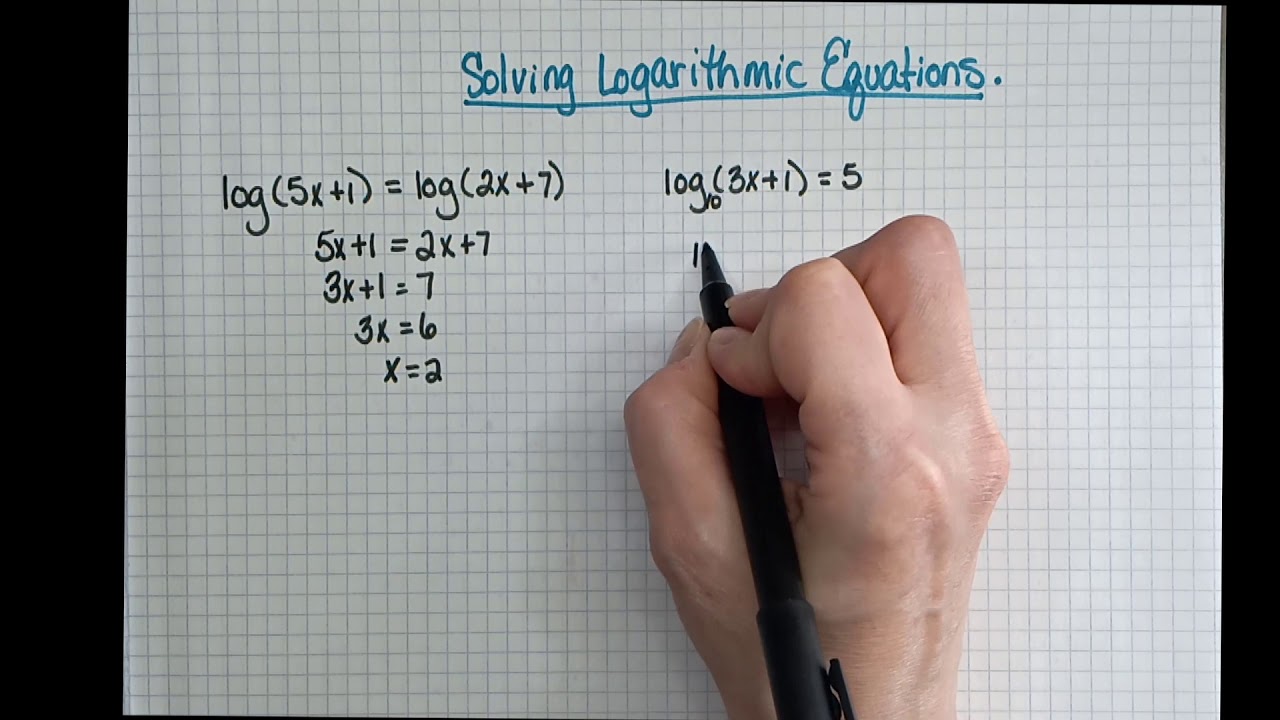 Solving Logarithmic Equations.
log(5x+1) = log(2x+7)
5x+1 = 2x+7
3x+1 = 7
3x = 6
x = 2
log₁₀(3x+1) = 5
1